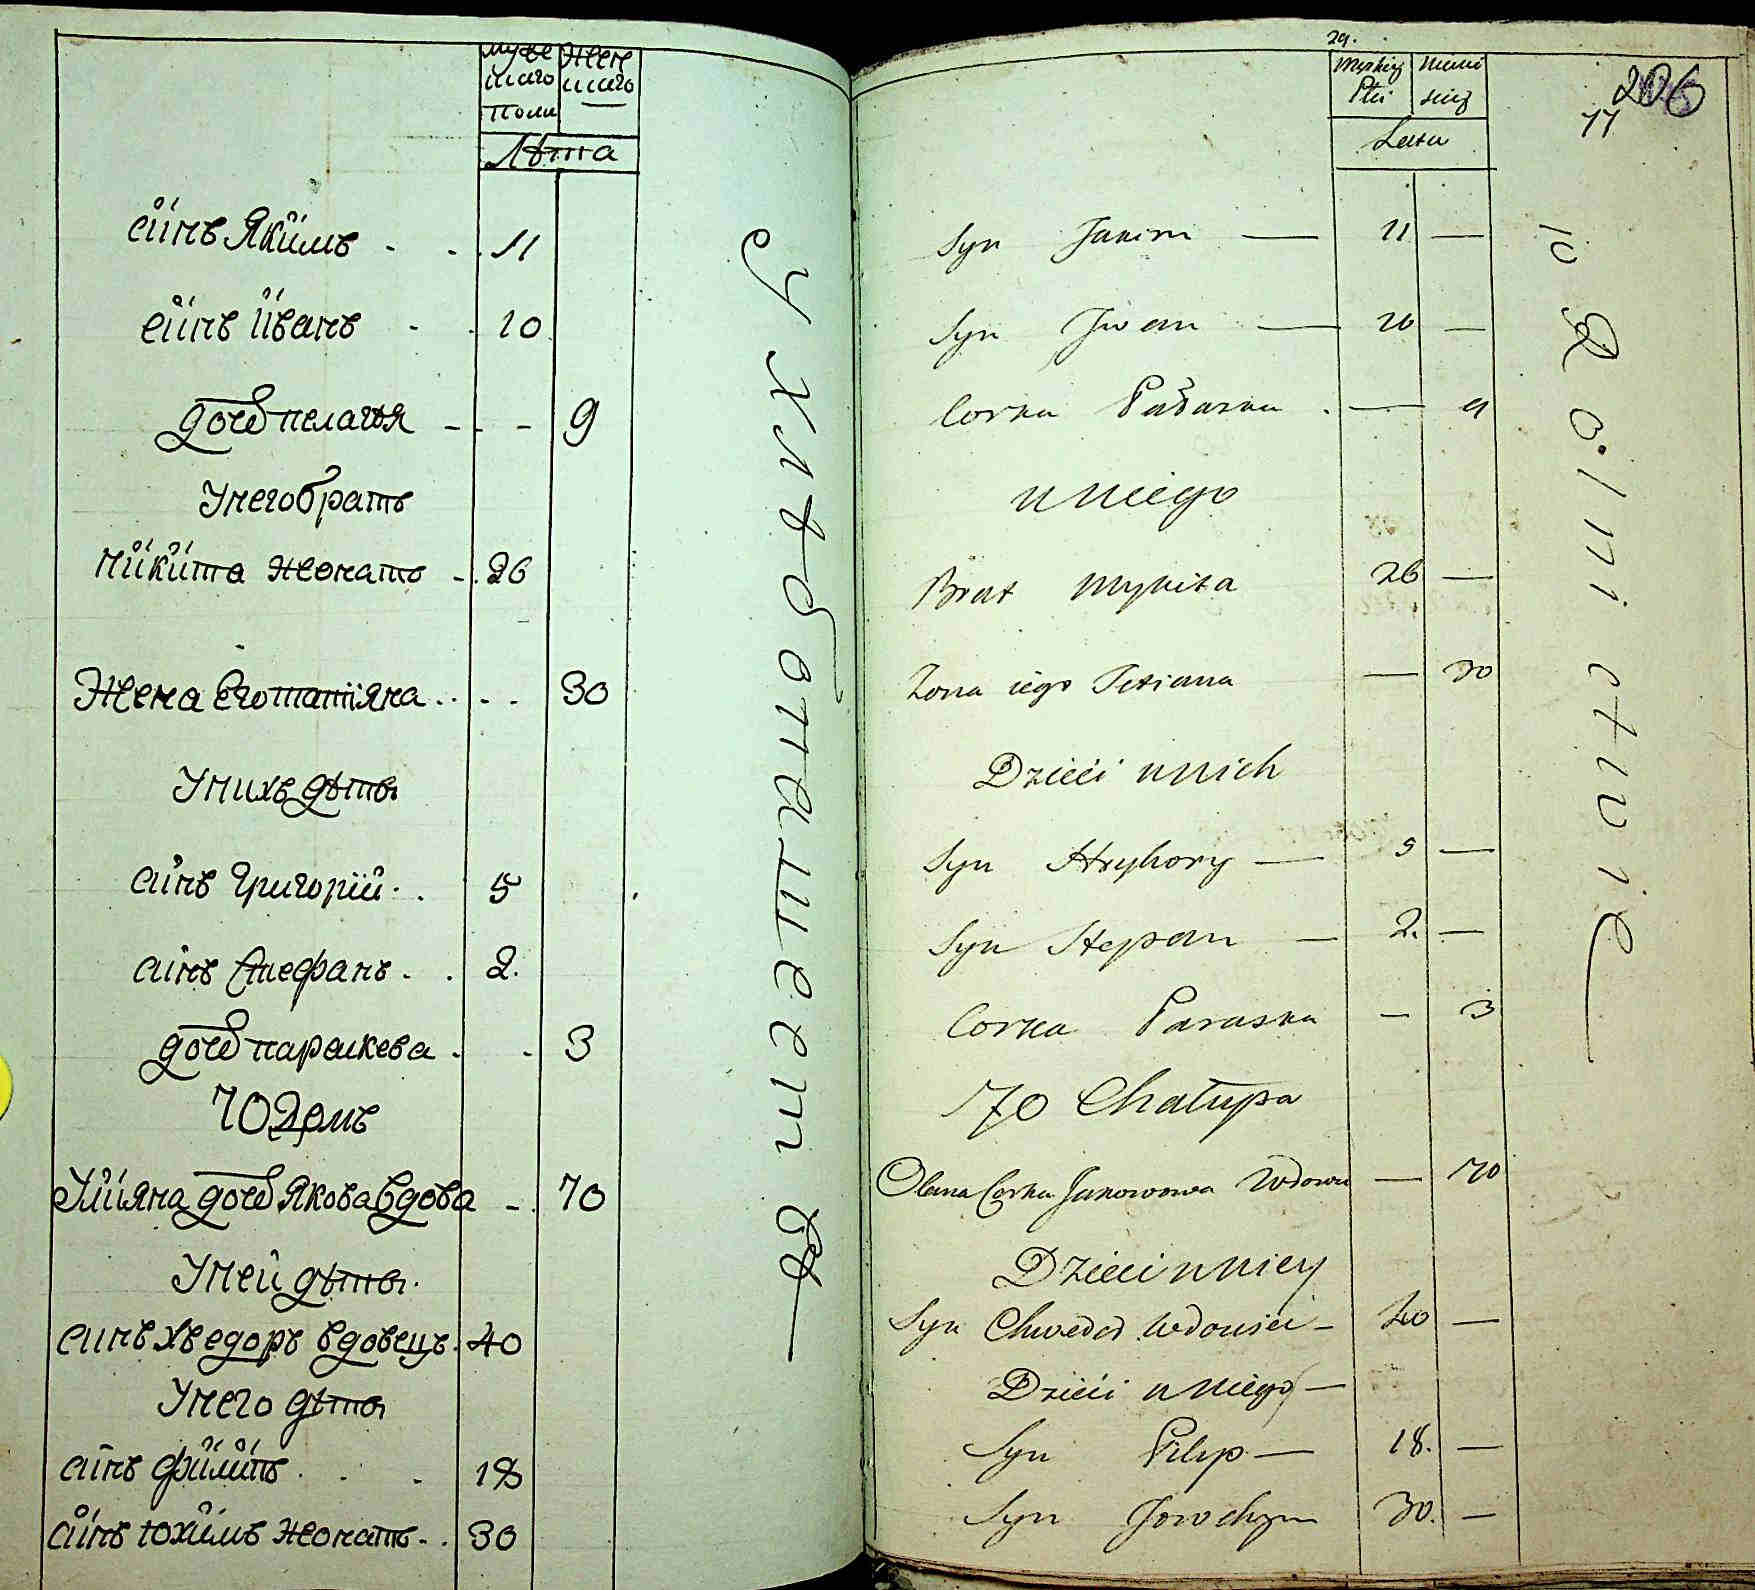 Муже Жен
скаго скаго
полu
Лѣта
сiнъ Якимъ - - 11
сiнъ iванъ - - 10
дочь пелагѣя - - - 9
Унего братъ
никита женатъ - 26
Жена Его татiяна - - 30
Унихъ дѣтѣ
сiнъ Григорiй - 5
сiнъ Стефанъ - 2.
дочь параскева - - 3
70 Домъ
Улiяна дочь Якова вдова - 70
Уней дѣтѣ
синъ хведоръ вдовецъ 40
Унего дѣтѣ
сiнъ филипъ - - 18
сiнъ юхимъ женатъ - 30
У хлѣбопашеств
29.
206
11
Męskiey
Płci
Lata
Syn Jakim — 11 —
Syn Jwan — 10 —
Corka Pałaxka — 9
u niego
Brat Mykita 26 —
Zona iego Tetiana — 30
Dzieci u nich
Syn Hryhory — 5 —
Syn Stepan — 2. —
Corka Paraska — 3
70 Chałupa
Corka Jakowowa Wdowa — 70
Dzieci u niey
Syn Chwedor Wdowiec — 40 —
Dzieci u niego —
Syn Pilip — 18. —
Syn Jowchym 30. —
w Rolnictwie